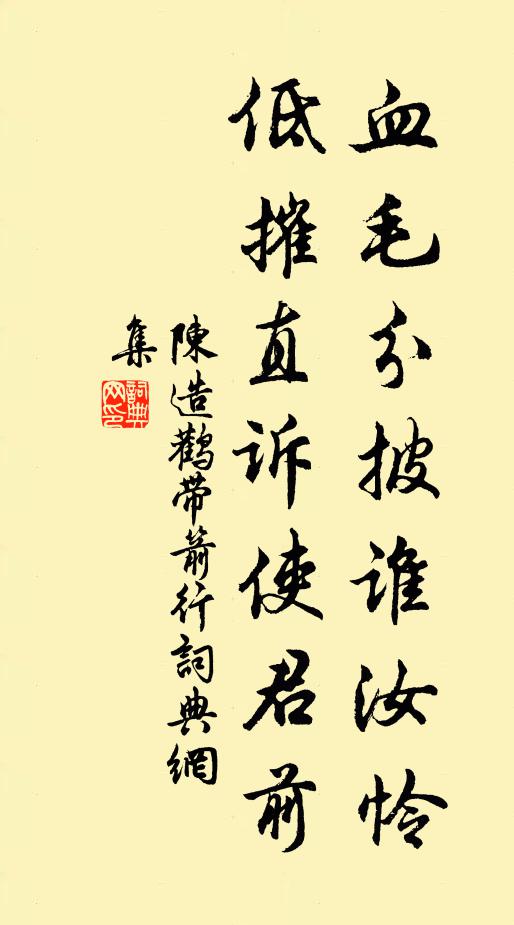 血毛分披谁汝怜
低摧直诉使君前
陳造鸛带箭行詞典網
集
詞典
网印